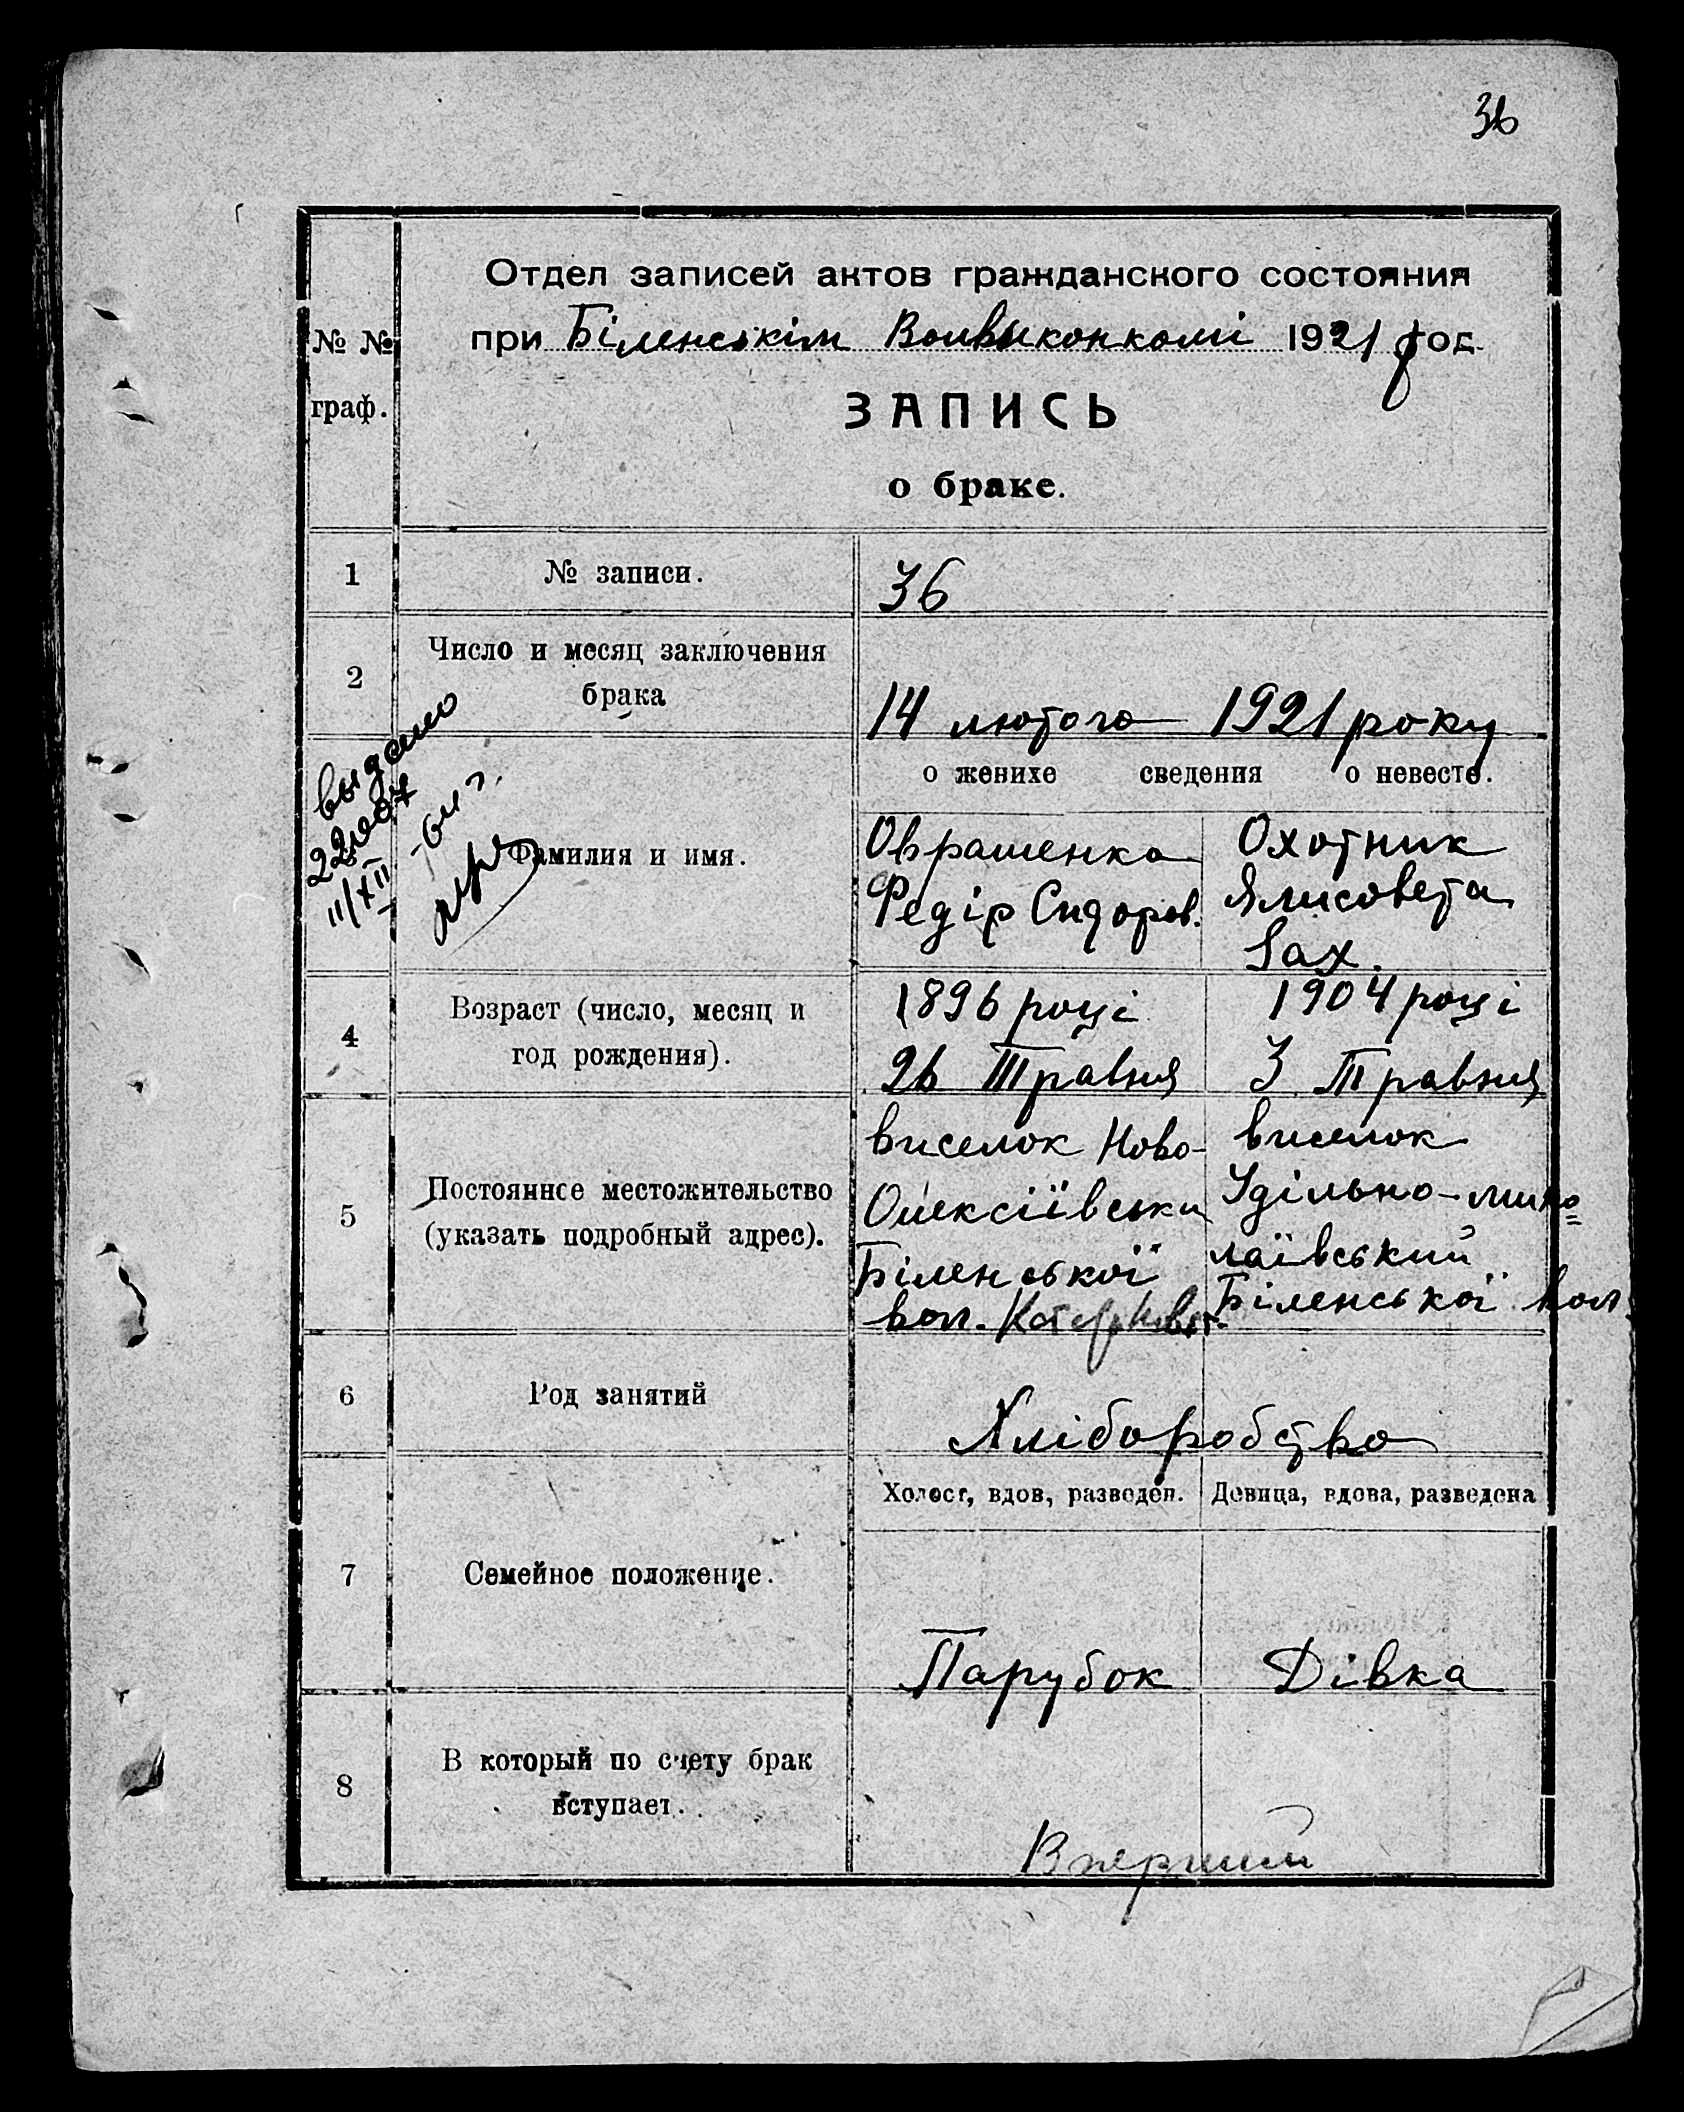 36
Отдел записей актов гражданского состояния
№ №
граф.
при Біленськім Волвиконкомі 1921 год.
ЗАПИСЬ
о браке.
1
№ записи.
36
2
Число и месяц заключения
брака
14 лютого 1921 року
о женихе сведения о невесте.
выдано
II/XII
Фамилия и имя.
Овраменко
Федір Сидоров.
Охотник
Ялисовета
Зах.
4
Возраст (число, месяц и
год рождения).
1896 році
26 Травня
1904 році
3 Травня
5
Постоянное местожительство
(указать подробный адрес).
виселок Ново-
Олексіївськи
Біленської
вол.
виселок
Удільно-мико=
лаївський
Біленської вол
6
Род занятий
Хліборобство
7
Семейное положение.
Холост, вдов, разведен.
Девица, вдова, разведена
Парубок
Дівка
8
В который по счету брак
вступает.
Вперший